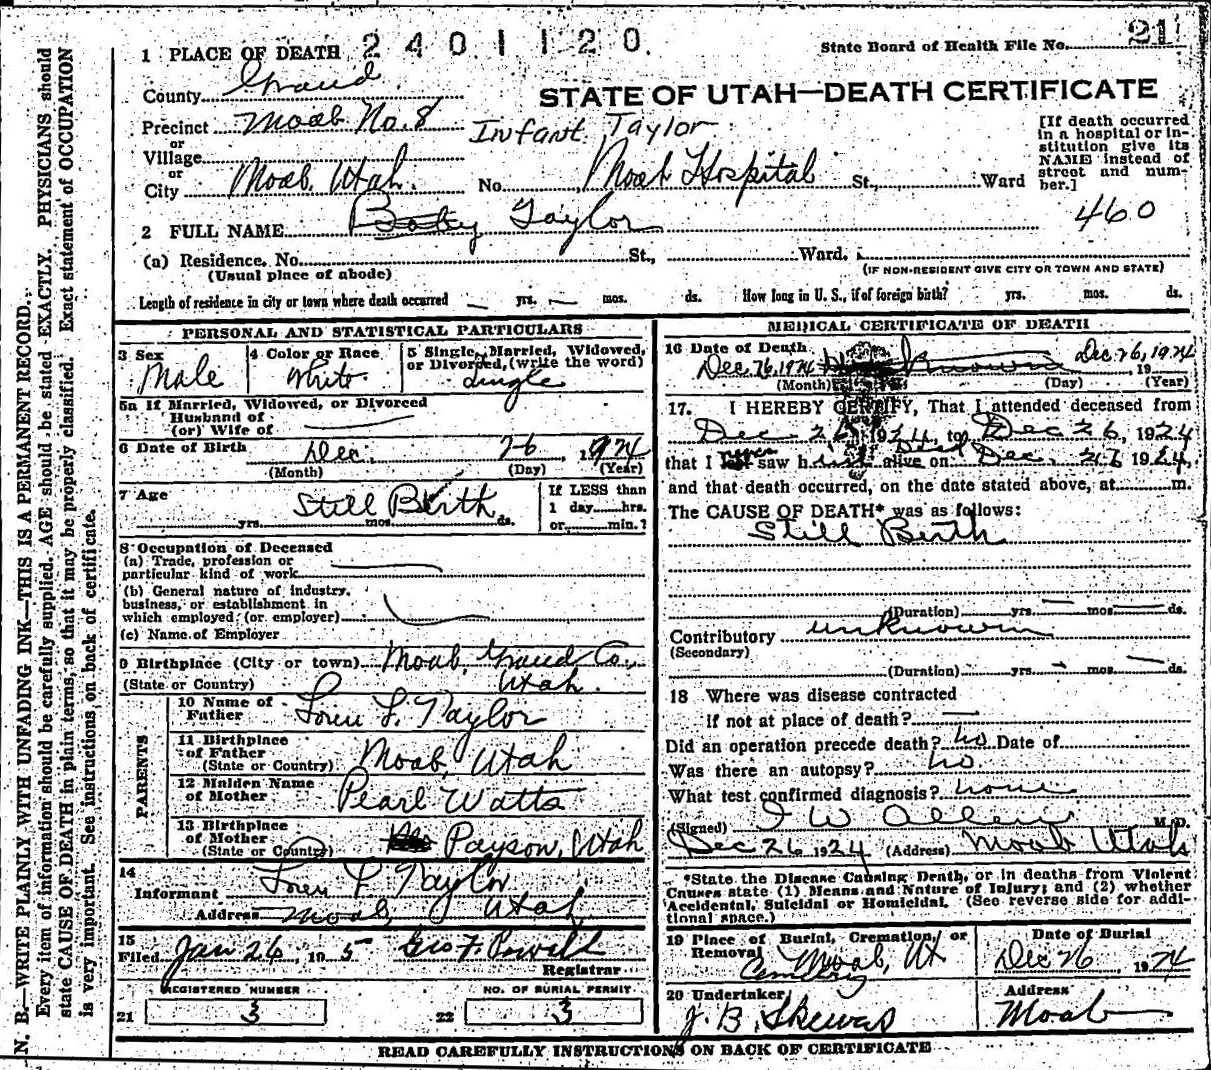 21
1 PLACE OF DEATH 2401120.
State Board of Health File No.
County Grand
STATE OF UTAH—DEATH CERTIFICATE
Precinct Moab No. 8
Infant Taylor
or
Village
or
City Moab, Utah. No. Moab Hospital St., Ward
[If death occurred
in a hospital or in-
stitution give its
NAME instead of
street and num-
ber.]
460
2 FULL NAME Baby Taylor
(a) Residence. No. St., Ward.
(Usual place of abode) (IF NON-RESIDENT GIVE CITY OR TOWN AND STATE)
Length of residence in city or town where death occurred — yrs. — mos. ds. How long in U. S., if of foreign birth? yrs. mos. ds.
PERSONAL AND STATISTICAL PARTICULARS
3 Sex 4 Color or Race 5 Single, Married, Widowed,
or Divorced, (write the word)
Male White Single
5a If Married, Widowed, or Divorced
Husband of
(or) Wife of
6 Date of Birth Dec. 26, 1924
(Month) (Day) (Year)
7 Age Still Birth
yrs. mos. ds.
If LESS than
1 day hrs.
or min.?
8 Occupation of Deceased
(a) Trade, profession or
particular kind of work
(b) General nature of industry,
business, or establishment in
which employed (or employer)
(c) Name of Employer
9 Birthplace (City or town) Moab, Grand Co.,
(State or Country) Utah.
PARENTS
10 Name of
Father Loren L. Taylor
11 Birthplace
of Father
(State or Country) Moab, Utah
12 Maiden Name
of Mother Pearl Watts
13 Birthplace
of Mother
(State or Country) Payson, Utah
14
Informant Loren L Taylor
Address Moab, Utah
15
Filed Jan 26, 19 5 Geo F. Powell
Registrar
REGISTERED NUMBER NO. OF BURIAL PERMIT
21 3 22 3
MEDICAL CERTIFICATE OF DEATH
16 Date of Death
Dec. 26, 1924 Dec 26, 1924
(Month) (Day) 19 (Year)
17. I HEREBY CERTIFY, That I attended deceased from
Dec 26, 1924, to Dec 26, 1924
that I last saw him alive on Dec. 26 1924,
and that death occurred, on the date stated above, at m.
The CAUSE OF DEATH* was as follows:
Still Birth
(Duration) yrs. — mos. — ds.
Contributory unknown
(Secondary)
(Duration) yrs. — mos. — ds.
18 Where was disease contracted
if not at place of death? —
Did an operation precede death? no Date of
Was there an autopsy? no
What test confirmed diagnosis? none
(Signed) I W Allen M.D.
Dec 26 1924 (Address) Moab Utah
*State the Disease Causing Death, or in deaths from Violent
Causes state (1) Means and Nature of Injury; and (2) whether
Accidental, Suicidal or Homicidal. (See reverse side for addi-
tional space.)
19 Place of Burial, Cremation, or
Removal Moab, Ut
Cemetery
Date of Burial
Dec 26 1924
20 Undertaker
J. B. Skewes
Address
Moab
READ CAREFULLY INSTRUCTIONS ON BACK OF CERTIFICATE
N. B.—WRITE PLAINLY WITH UNFADING INK—THIS IS A PERMANENT RECORD.
Every item of information should be carefully supplied. AGE should be stated EXACTLY. PHYSICIANS should
state CAUSE OF DEATH in plain terms, so that it may be properly classified. Exact statement of OCCUPATION
is very important. See instructions on back of certificate.